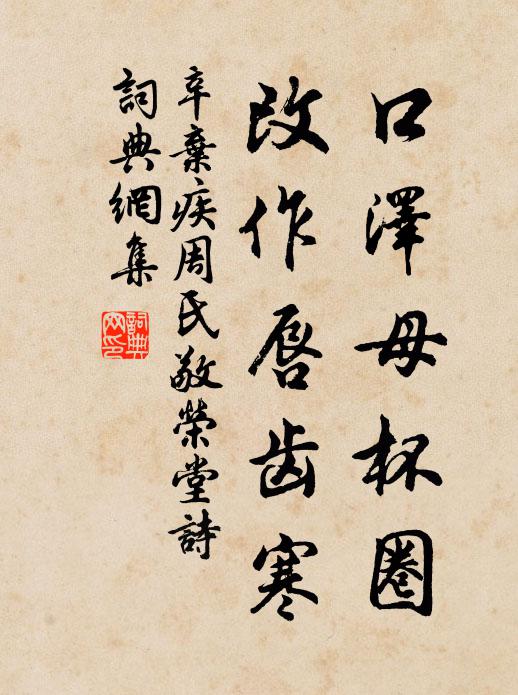 口澤母杯圈
改作唇齒寒
辛棄疾周氏敬榮堂詩
詞典網集
詞典網印